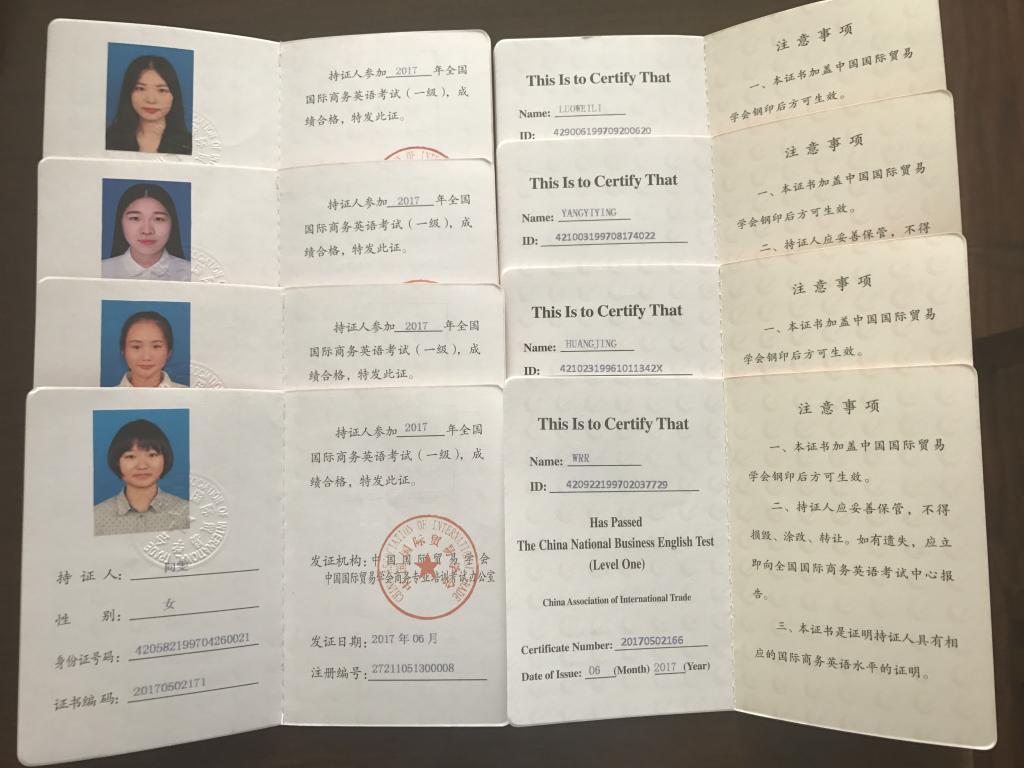 持证人参加 2017 年全国
国际商务英语考试（一级），成
绩合格，特发此证。
持证人参加 2017 年全国
国际商务英语考试（一级），成
绩合格，特发此证。
持证人参加 2017 年全国
国际商务英语考试（一级），成
绩合格，特发此证。
持 证 人：
性 别： 女
身份证号码： 420582199704260021
证书编码： 20170502171
持证人参加 2017 年全国
国际商务英语考试（一级），成
绩合格，特发此证。
发证机构：中国国际贸易学会
中国国际贸易学会商务专业培训考试办公室
CHINA ASSOCIATION OF INTERNATIONAL TRADE
发证日期：2017 年 06 月
注册编号：27211051300008
This Is to Certify That
Name: LUOWEILI
ID: 429006199709200620
This Is to Certify That
Name: YANGYIYING
ID: 421003199708174022
This Is to Certify That
Name: HUANGJING
ID: 42102319961011342X
This Is to Certify That
Name: WRR
ID: 420922199702037729
Has Passed
The China National Business English Test
(Level One)
China Association of International Trade
Certificate Number: 20170502166
Date of Issue: 06 (Month) 2017 (Year)
注 意 事 项
一、本证书加盖中国国际贸易
学会钢印后方可生效。
注 意 事 项
一、本证书加盖中国国际贸易
学会钢印后方可生效。
二、持证人应妥善保管，不得
注 意 事 项
一、本证书加盖中国国际贸易
学会钢印后方可生效。
注 意 事 项
一、本证书加盖中国国际贸易
学会钢印后方可生效。
二、持证人应妥善保管，不得
损毁、涂改、转让。如有遗失，应立
即向全国国际商务英语考试中心报
告。
三、本证书是证明持证人具有相
应的国际商务英语水平的证明。